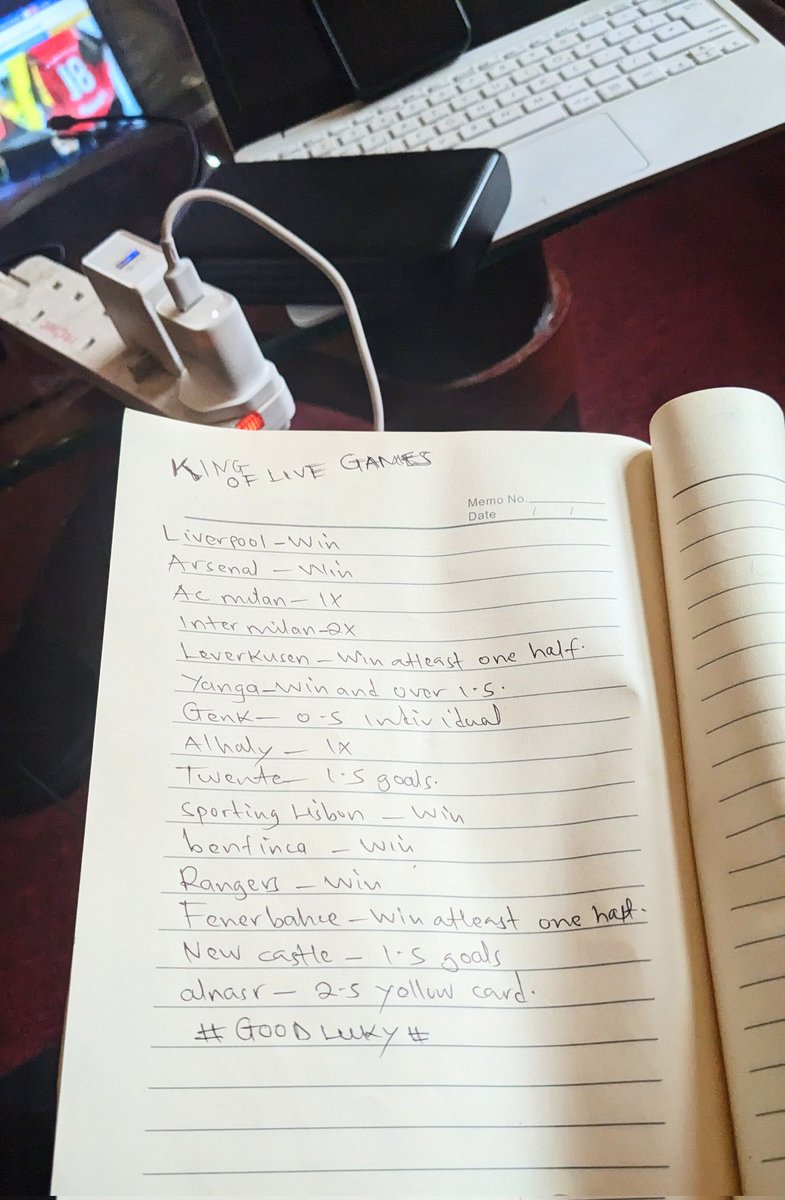 18
KING
OF LIVE GAMES
Memo No.
Date / /
Liverpool - Win
Arsenal - Win
Ac milan - 1X
Inter milan - 2X
Leverkusen - Win atleast one half.
Yanga - Win and over 1.5.
Genk - 0.5 Intividual
Alhaly - 1X
Twente 1.5 goals.
Sporting Lisbon - Win
benfinca - Win
Rangers - Win
Fenerbahce - Win atleast one half.
New castle - 1.5 goals
alnasr - 2.5 yollow card.
# GOOD LUKY #